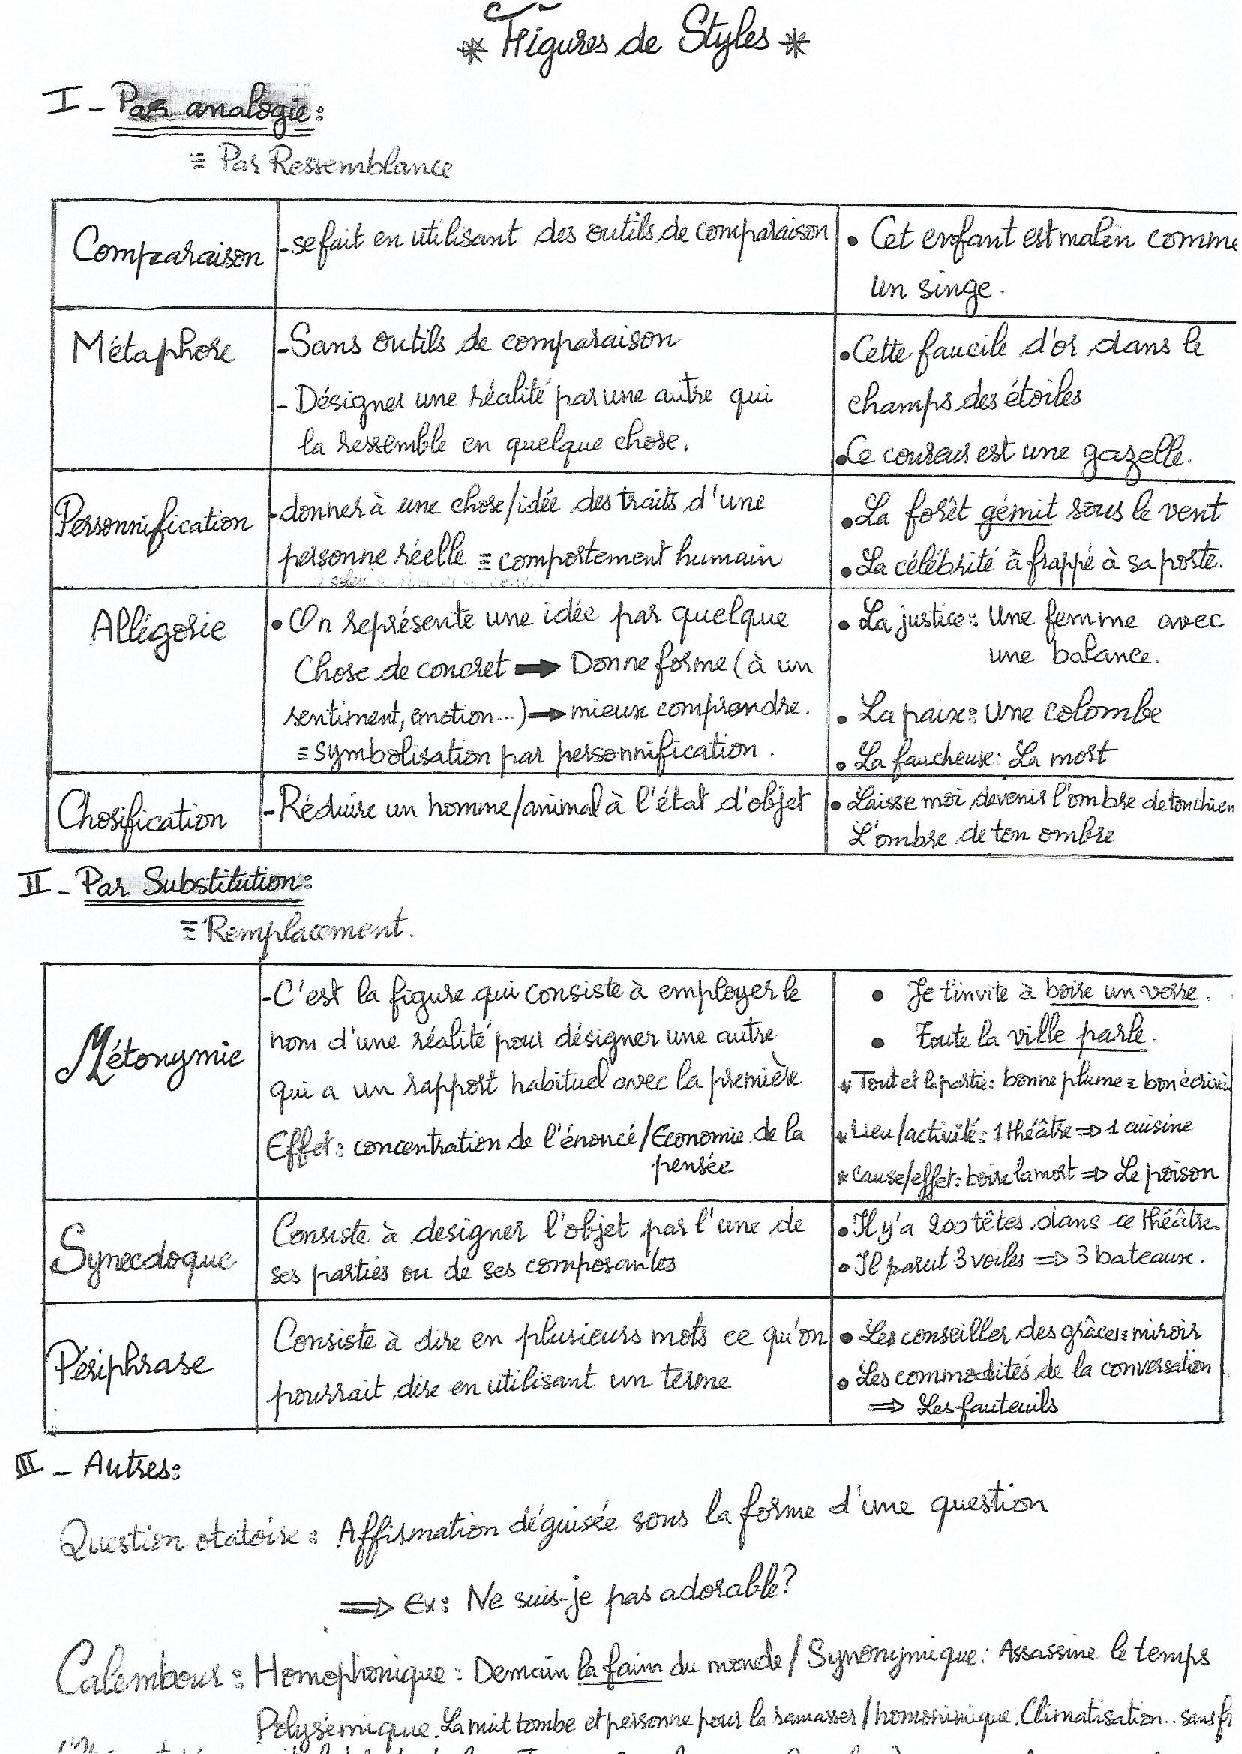 * Figures de Styles *
I - Par analogie :
≡ Par Ressemblance
Comparaison
- se fait en utilisant des outils de comparaison
• Cet enfant est malin comme
un singe.
Métaphore
- Sans outils de comparaison
- Désigner une réalité par une autre qui
la ressemble en quelque chose.
• Cette faucile d'or dans le
champs des étoiles
• Ce coureur est une gazelle.
Personnification
- donner à une chose/idée des traits d'une
personne réelle ≡ comportement humain
• La forêt gémit sous le vent
• La célébrité à frappé à sa porte.
Allégorie
• On représente une idée par quelque
Chose de concret ➡ Donne forme (à un
sentiment, émotion...) ➡ mieux comprendre.
≡ symbolisation par personnification.
• La justice : Une femme avec
une balance.
• La paix : Une colombe
• La faucheuse : La mort
Chosification
- Réduire un homme/animal à l'état d'objet
• Laisse moi devenir l'ombre de ton chien
L'ombre de ton ombre
II - Par Substitution :
≡ Remplacement.
Métonymie
- C'est la figure qui consiste à employer le
nom d'une réalité pour désigner une autre
qui a un rapport habituel avec la première
Effet : concentration de l'énoncé / Economie de la
pensée
• Je t'invite à boire un verre.
• Toute la ville parle.
* Tout et la partie : bonne plume = bon écrivain
* Lieu/activité : 1 théâtre ⇒ 1 cuisine
* Cause/effet : boire la mort ⇒ Le poison
Synecdoque
Consiste à designer l'objet par l'une de
ses parties ou de ses composantes
• Il y'a 200 têtes dans ce théâtre.
• Il parut 3 voiles ⇒ 3 bateaux.
Périphrase
Consiste à dire en plusieurs mots ce qu'on
pourrait dire en utilisant un terme
• Les conseiller des grâces = miroir
• Les commodités de la conversation
⇒ Les fauteuils
III - Autres :
Question otatoire : Affirmation déguisée sous la forme d'une question
⇒ Ex : Ne suis-je pas adorable ?
Calembour : Homophonique : Demain la faim du monde / Synonymique : Assassine le temps
Polysémique. La nuit tombe et personne pour la ramasser / homonimique. Climatisation.. sans